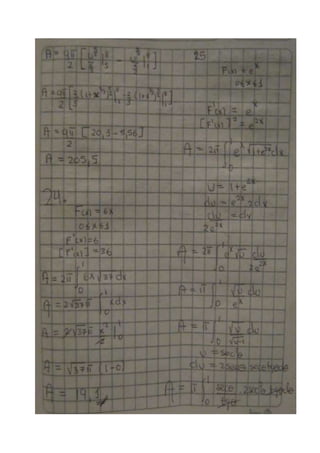 A = 4π/2 [
A = 4π/2 [
A = 4π/2 [20,3 - 5,56]
A = 205,5
24.
F(x) = 6x
0≤x≤1
F'(x) = 6
[F'(x)]² = 36
A = 2π ∫₀¹ 6x √37 dx
A = 2√37π ∫₀¹ x dx
A = 2√37π x²/2 |₀¹
A = √37π (1-0)
A = 19,1
25
F(x) = eˣ
0≤x≤1
F'(x) = eˣ
[F'(x)]² = e²ˣ
A = 2π ∫₀¹ eˣ √1+e²ˣ dx
u = 1+e²ˣ
du = e²ˣ 2dx
du/2e²ˣ = dx
A = 2π ∫₀¹ eˣ √u du/2e²ˣ
A = π ∫₀¹ √u du/eˣ
A = π ∫₀¹ √u du/√u-1
A = π ∫₀¹